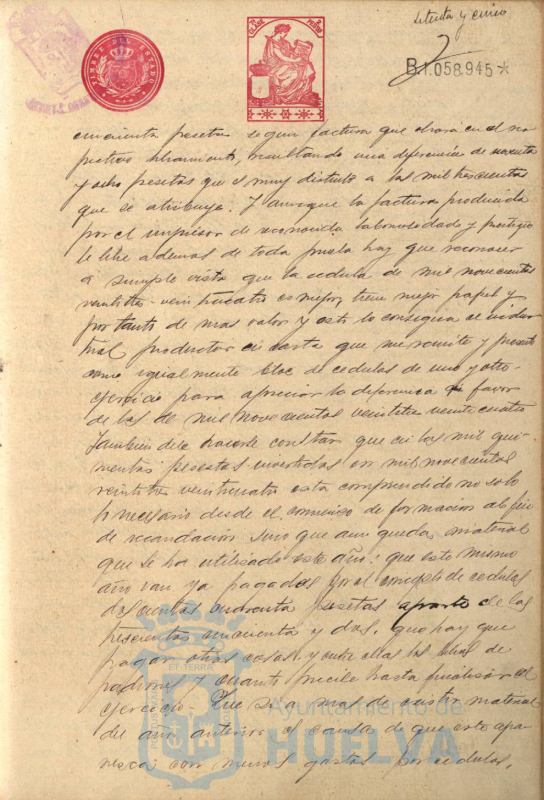 setenta y cinco
B.1.058.945*
TIMBRE DEL ESTADO
cincuenta pesetas segun factura que obrara en el res
pectivo libramiento, resultando una diferencia de noventa
y ocho pesetas que es muy distinto a las mil trescientas
que se atribuye. Y aunque la factura producida
por el impresor de reconocida laboriosidad y prestigio
le libre ademas de toda prueba hay que reconocer
a simple vista que la cedula de mil novecientos
veintitres-veinticuatro es mejor, tiene mejor papel y
por tanto de mas valor y esto lo consigna el indus
trial productor en carta que me remite y presento
como igualmente bloc de cedulas de uno y otro
ejercicio para apreciar la diferencia a favor
de las de mil novecientos veintitres veinticuatro
Tambien debe hacerse constar que en las mil qui-
nientas pesetas invertidas en mil novecientos
veintitres veinticuatro esta comprendido no solo
lo necesario desde el comienzo de formacion al fin
de recaudacion sino que aun queda material
que se ha utilizado este año: que este mismo
año van ya pagadas por el concepto de cedulas
doscientas cuarenta pesetas aparte de las
trescientas cincuenta y dos, que hay que
pagar otras cosas y entre ellas las de
padrones y cuanto precise hasta finalizar el
ejercicio. Que sea mas de existir material
del año anterior es causa de que este apa-
rezca con menos gastos por cedulas.
Ayuntamiento de
HUELVA